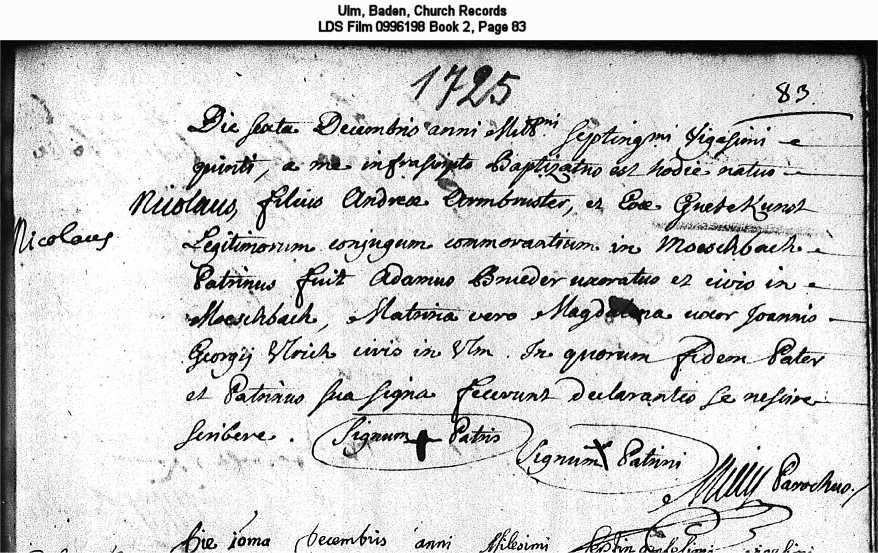 Ulm, Baden, Church Records
LDS Film 0996198 Book 2, Page 83
1725
83
Die sexta Decembris anni Mill^ni Septingmi Vigesimi
quinti, a me infrascripto Baptizatus est hodie natus
Nicolaus, filius Andreæ Armbruster, et Evæ Guetekunst
Nicolaus
Legitimorum conjugum commorantium in Moeschbach
Patrinus fuit Adamus Brueder uxoratus et civis in
Moeschbach, Matrina vero Magdalena uxor Joannis
Georgij Ulrich civis in Ulm. In quorum fidem Pater
et Patrinus sua signa fecerunt declarantes se nescire
scribere. Signum + Patris
Signum + Patrini
Parochus
Die Decembris anni